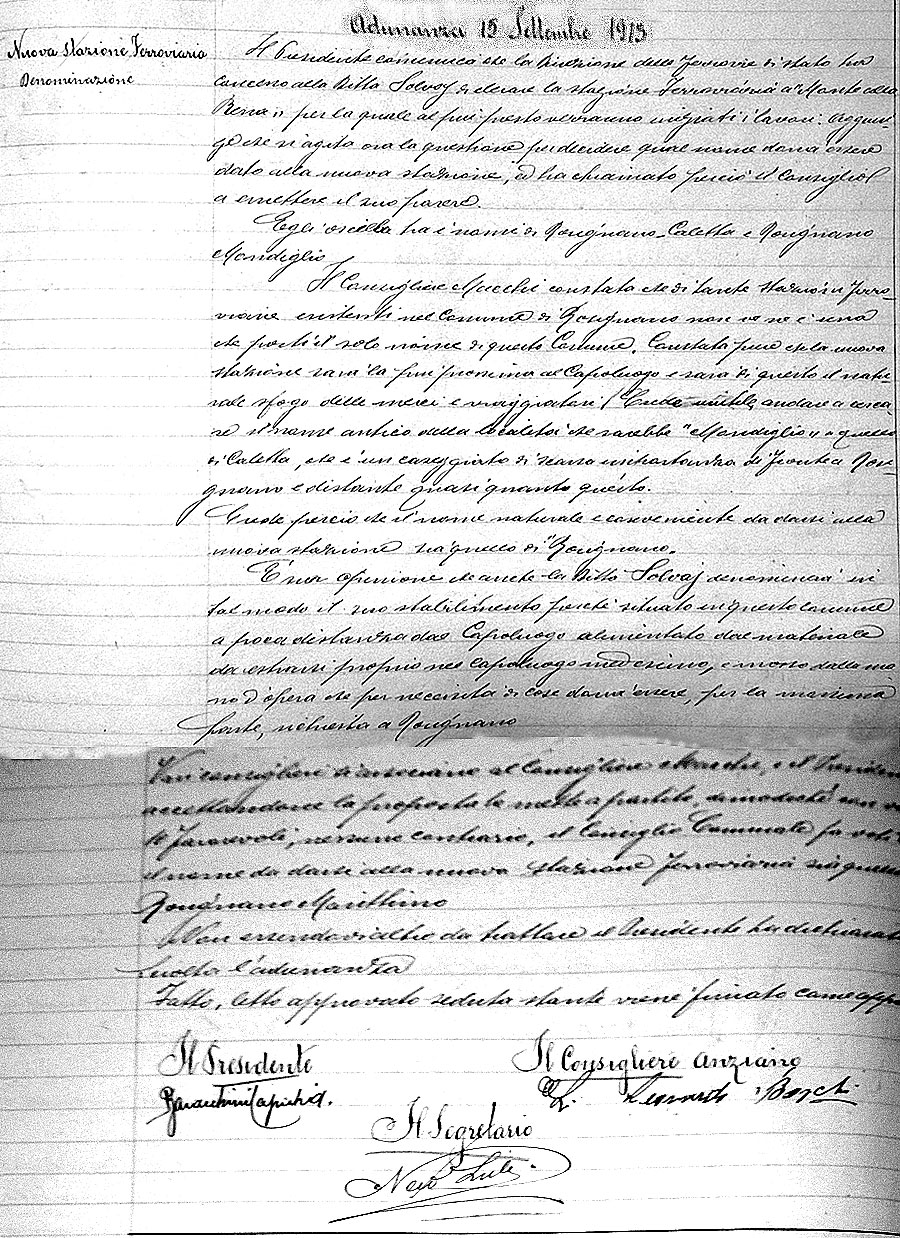 Adunanza 15 Settembre 1913
Nuova Stazione Ferroviaria
Denominazione
Il Presidente comunica che la Direzione delle Ferrovie di stato ha
concesso alla Ditta Solvay di elevare la stazione Ferroviaria a "Monte alla
Rena" per la quale al più presto verranno iniziati i lavori. Aggiun-
ge che si agita ora la questione per decidere quale nome dovrà essere
dato alla nuova stazione, ed ha chiamato perciò il Consiglio
a emettere il suo parere.
Egli oscilla tra i nomi di Rosignano-Caletta e Rosignano
Mondiglio
Il Consigliere Macchi constata che di tante stazioni Ferro-
viarie esistenti nel Comune di Rosignano non ve ne è una
che porti il solo nome di questo Comune. Constata pure che la nuova
stazione sarà la più prossima al Capoluogo e sarà di questo il natu-
rale sfogo delle merci e viaggiatori. Crede inutile andare a cerca-
re il nome antico della località che sarebbe "Mondiglio" o quello
di Caletta, che è un caseggiato di scarsa importanza di fronte a Rosi-
gnano e distante quasi quanto questo.
Crede perciò che il nome naturale e conveniente da darsi alla
nuova stazione sia quello di "Rosignano.
È sua opinione che anche la Ditta Solvaj denominerà in
tal modo il suo stabilimento perché situato in questo Comune
a poca distanza dal Capoluogo alimentato dal materiale
da estrarsi proprio nel Capoluogo medesimo, e mosso dalla ma
no d'opera che per necessità di cose dovrà essere, per la massima
parte, richiesta a Rosignano
Vari consiglieri si associano al Consigliere Macchi, e il Presiden
accettandone la proposta la mette a partito, dimodoché con v
16 favorevoli, nessuno contrario, il Consiglio Comunale fa voti
il nome da darsi alla nuova stazione Ferroviaria sia quello
Rosignano Marittimo
Non essendovi altro da trattare il Presidente ha dichiarat
sciolta l'adunanza
Fatto, letto approvato seduta stante viene firmato come app
Il Presidente
Il Consigliere anziano
Il Segretario